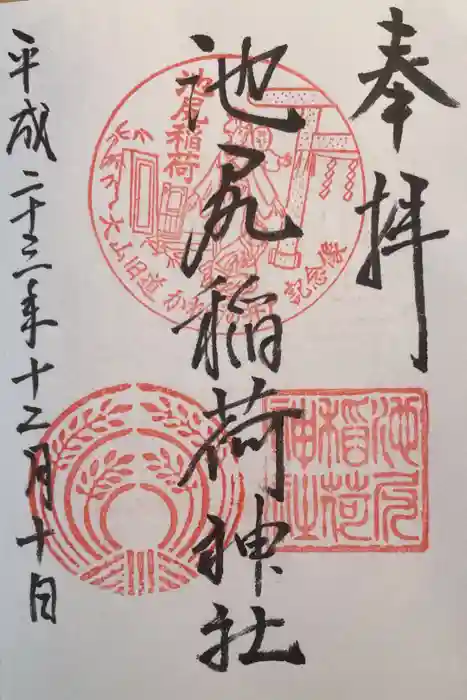 奉拝
池尻稲荷神社
平成二十三年十二月十日
池尻稲荷
大山旧道
記念像
池尻
稲荷
神社